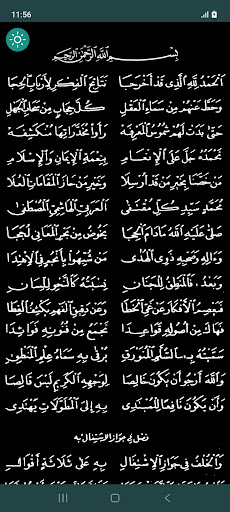 11:56
بِسْمِ اللَّهِ الرَّحْمَنِ الرَّحِيمِ
الْحَمْدُ لِلَّهِ الَّذِي قَدْ أَخْرَجَا نَتَائِجَ الْفِكْرِ لِأَرْبَابِ الْحِجَا
وَحَطَّ عَنْهُمْ مِنْ سَمَاءِ الْعَقْلِ كُلَّ حِجَابٍ مِنْ سَحَابِ الْجَهْلِ
حَتَّى بَدَتْ لَهُمْ شُمُوسُ الْمَعْرِفَهْ رَأَوْا مُخَدَّرَاتِهَا مُنْكَشِفَهْ
نَحْمَدُهُ جَلَّ عَلَى الْإِنْعَامِ بِنِعْمَةِ الْإِيمَانِ وَالْإِسْلَامِ
مَنْ خَصَّنَا بِخَيْرِ مَنْ قَدْ أُرْسِلَا وَخَيْرِ مَنْ حَازَ الْمَقَامَاتِ الْعُلَا
مُحَمَّدٍ سَيِّدِ كُلِّ مُقْتَفَى الْعَرَبِيِّ الْهَاشِمِيِّ الْمُصْطَفَى
صَلَّى عَلَيْهِ اللَّهُ مَادَامَ الْحِجَا يَخُوضُ مِنْ بَحْرِ الْمَعَانِي لُجَجَا
وَآلِهِ وَصَحْبِهِ ذَوِي الْهُدَى مَنْ شُبِّهُوا بِأَنْجُمٍ فِي الِاهْتِدَا
وَبَعْدُ، فَالْمَنْطِقُ لِلْجَنَانِ نِسْبَتُهُ كَالنَّحْوِ لِلِّسَانِ
فَيَعْصِمُ الْأَفْكَارَ عَنْ غَيِّ الْخَطَا وَعَنْ دَقِيقِ الْفَهْمِ يَكْشِفُ الْغِطَا
فَهَاكَ مِنْ أُصُولِهِ قَوَاعِدَا تَجْمَعُ مِنْ فُنُونِهِ فَوَائِدَا
سَمَّيْتُهُ بِالسُّلَّمِ الْمُنَوْرَقِ يُرْقَى بِهِ سَمَاءُ عِلْمِ الْمَنْطِقِ
وَاللَّهَ أَرْجُو أَنْ يَكُونَ خَالِصَا لِوَجْهِهِ الْكَرِيمِ لَيْسَ قَالِصَا
وَأَنْ يَكُونَ نَافِعًا لِلْمُبْتَدِي بِهِ إِلَى الْمُطَوَّلَاتِ يَهْتَدِي
فصل في جواز الاشتغال به
وَالْخُلْفُ فِي جَوَازِ الِاشْتِغَالِ بِهِ عَلَى ثَلَاثَةٍ أَقْوَالِ